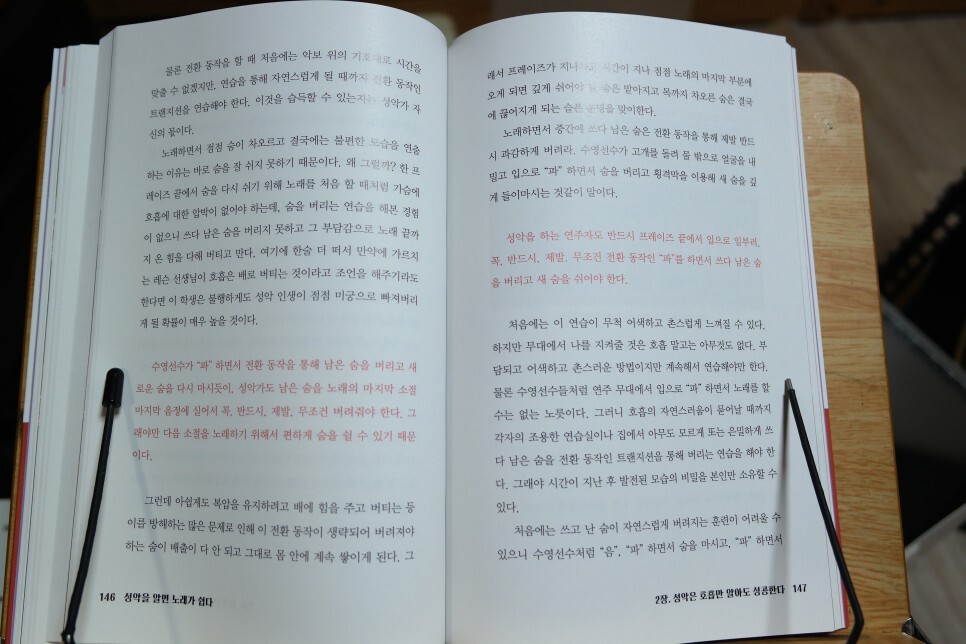 물론 전환 동작을 할 때 처음에는 악보 위의 기호대로 시간을
맞출 수 없겠지만, 연습을 통해 자연스럽게 될 때까지 전환 동작인
트랜지션을 연습해야 한다. 이것을 습득할 수 있는지는 성악가 자
신의 몫이다.
노래하면서 점점 숨이 차오르고 결국에는 불편한 모습을 연출
하는 이유는 바로 숨을 잘 쉬지 못하기 때문이다. 왜 그럴까? 한 프
레이즈 끝에서 숨을 다시 쉬기 위해 노래를 처음 할 때처럼 가슴에
호흡에 대한 압박이 없어야 하는데, 숨을 버리는 연습을 해본 경험
이 없으니 쓰다 남은 숨을 버리지 못하고 그 부담감으로 노래 끝까
지 온 힘을 다해 버티고 만다. 여기에 한술 더 떠서 만약에 가르치
는 레슨 선생님이 호흡은 배로 버티는 것이라고 조언을 해주기라도
한다면 이 학생은 불행하게도 성악 인생이 점점 미궁으로 빠져버리
게 될 확률이 매우 높을 것이다.
수영선수가 “파” 하면서 전환 동작을 통해 남은 숨을 버리고 새
로운 숨을 다시 마시듯이, 성악가도 남은 숨을 노래의 마지막 소절
마지막 음정에 실어서 꼭, 반드시, 제발, 무조건 버려줘야 한다. 그
래야만 다음 소절을 노래하기 위해서 편하게 숨을 쉴 수 있기 때문
이다.
그런데 아쉽게도 복압을 유지하려고 배에 힘을 주고 버티는 등
이를 방해하는 많은 문제로 인해 이 전환 동작이 생략되어 버려져야
하는 숨이 배출이 다 안 되고 그대로 몸 안에 계속 쌓이게 된다. 그
146 성악을 알면 노래가 쉽다
래서 프레이즈가 지나 시간이 지나 점점 노래의 마지막 부분에
오게 되면 깊게 쉬어야 숨은 얕아지고 목까지 차오른 숨은 결국
에 끊어지게 되는 슬픈 운명을 맞이한다.
노래하면서 중간에 쓰다 남은 숨은 전환 동작을 통해 제발 반드
시 과감하게 버려라. 수영선수가 고개를 돌려 몸 밖으로 얼굴을 내
밀고 입으로 “파” 하면서 숨을 버리고 횡격막을 이용해 새 숨을 깊
게 들이마시는 것같이 말이다.
성악을 하는 연주자도 반드시 프레이즈 끝에서 입으로 일부러,
꼭, 반드시, 제발, 무조건 전환 동작인 “파”를 하면서 쓰다 남은 숨
을 버리고 새 숨을 쉬어야 한다.
처음에는 이 연습이 무척 어색하고 촌스럽게 느껴질 수 있다.
하지만 무대에서 나를 지켜줄 것은 호흡 말고는 아무것도 없다. 부
담되고 어색하고 촌스러운 방법이지만 계속해서 연습해야만 한다.
물론 수영선수들처럼 연주 무대에서 입으로 “파” 하면서 노래를 할
수는 없는 노릇이다. 그러니 호흡의 자연스러움이 묻어날 때까지
각자의 조용한 연습실이나 집에서 아무도 모르게 또는 은밀하게 쓰
다 남은 숨을 전환 동작인 트랜지션을 통해 버리는 연습을 해야 한
다. 그래야 시간이 지난 후 발전된 모습의 비밀을 본인만 소유할 수
있다.
처음에는 쓰고 난 숨이 자연스럽게 버려지는 훈련이 어려울 수
있으니 수영선수처럼 “음”, “파” 하면서 숨을 마시고, “파” 하면서
2장. 성악은 호흡만 알아도 성공한다 147